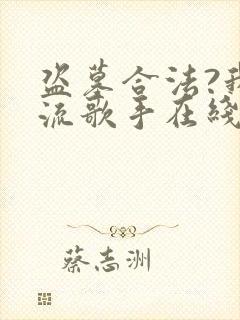 盗墓合法?我
流歌手在线
蔡志洲